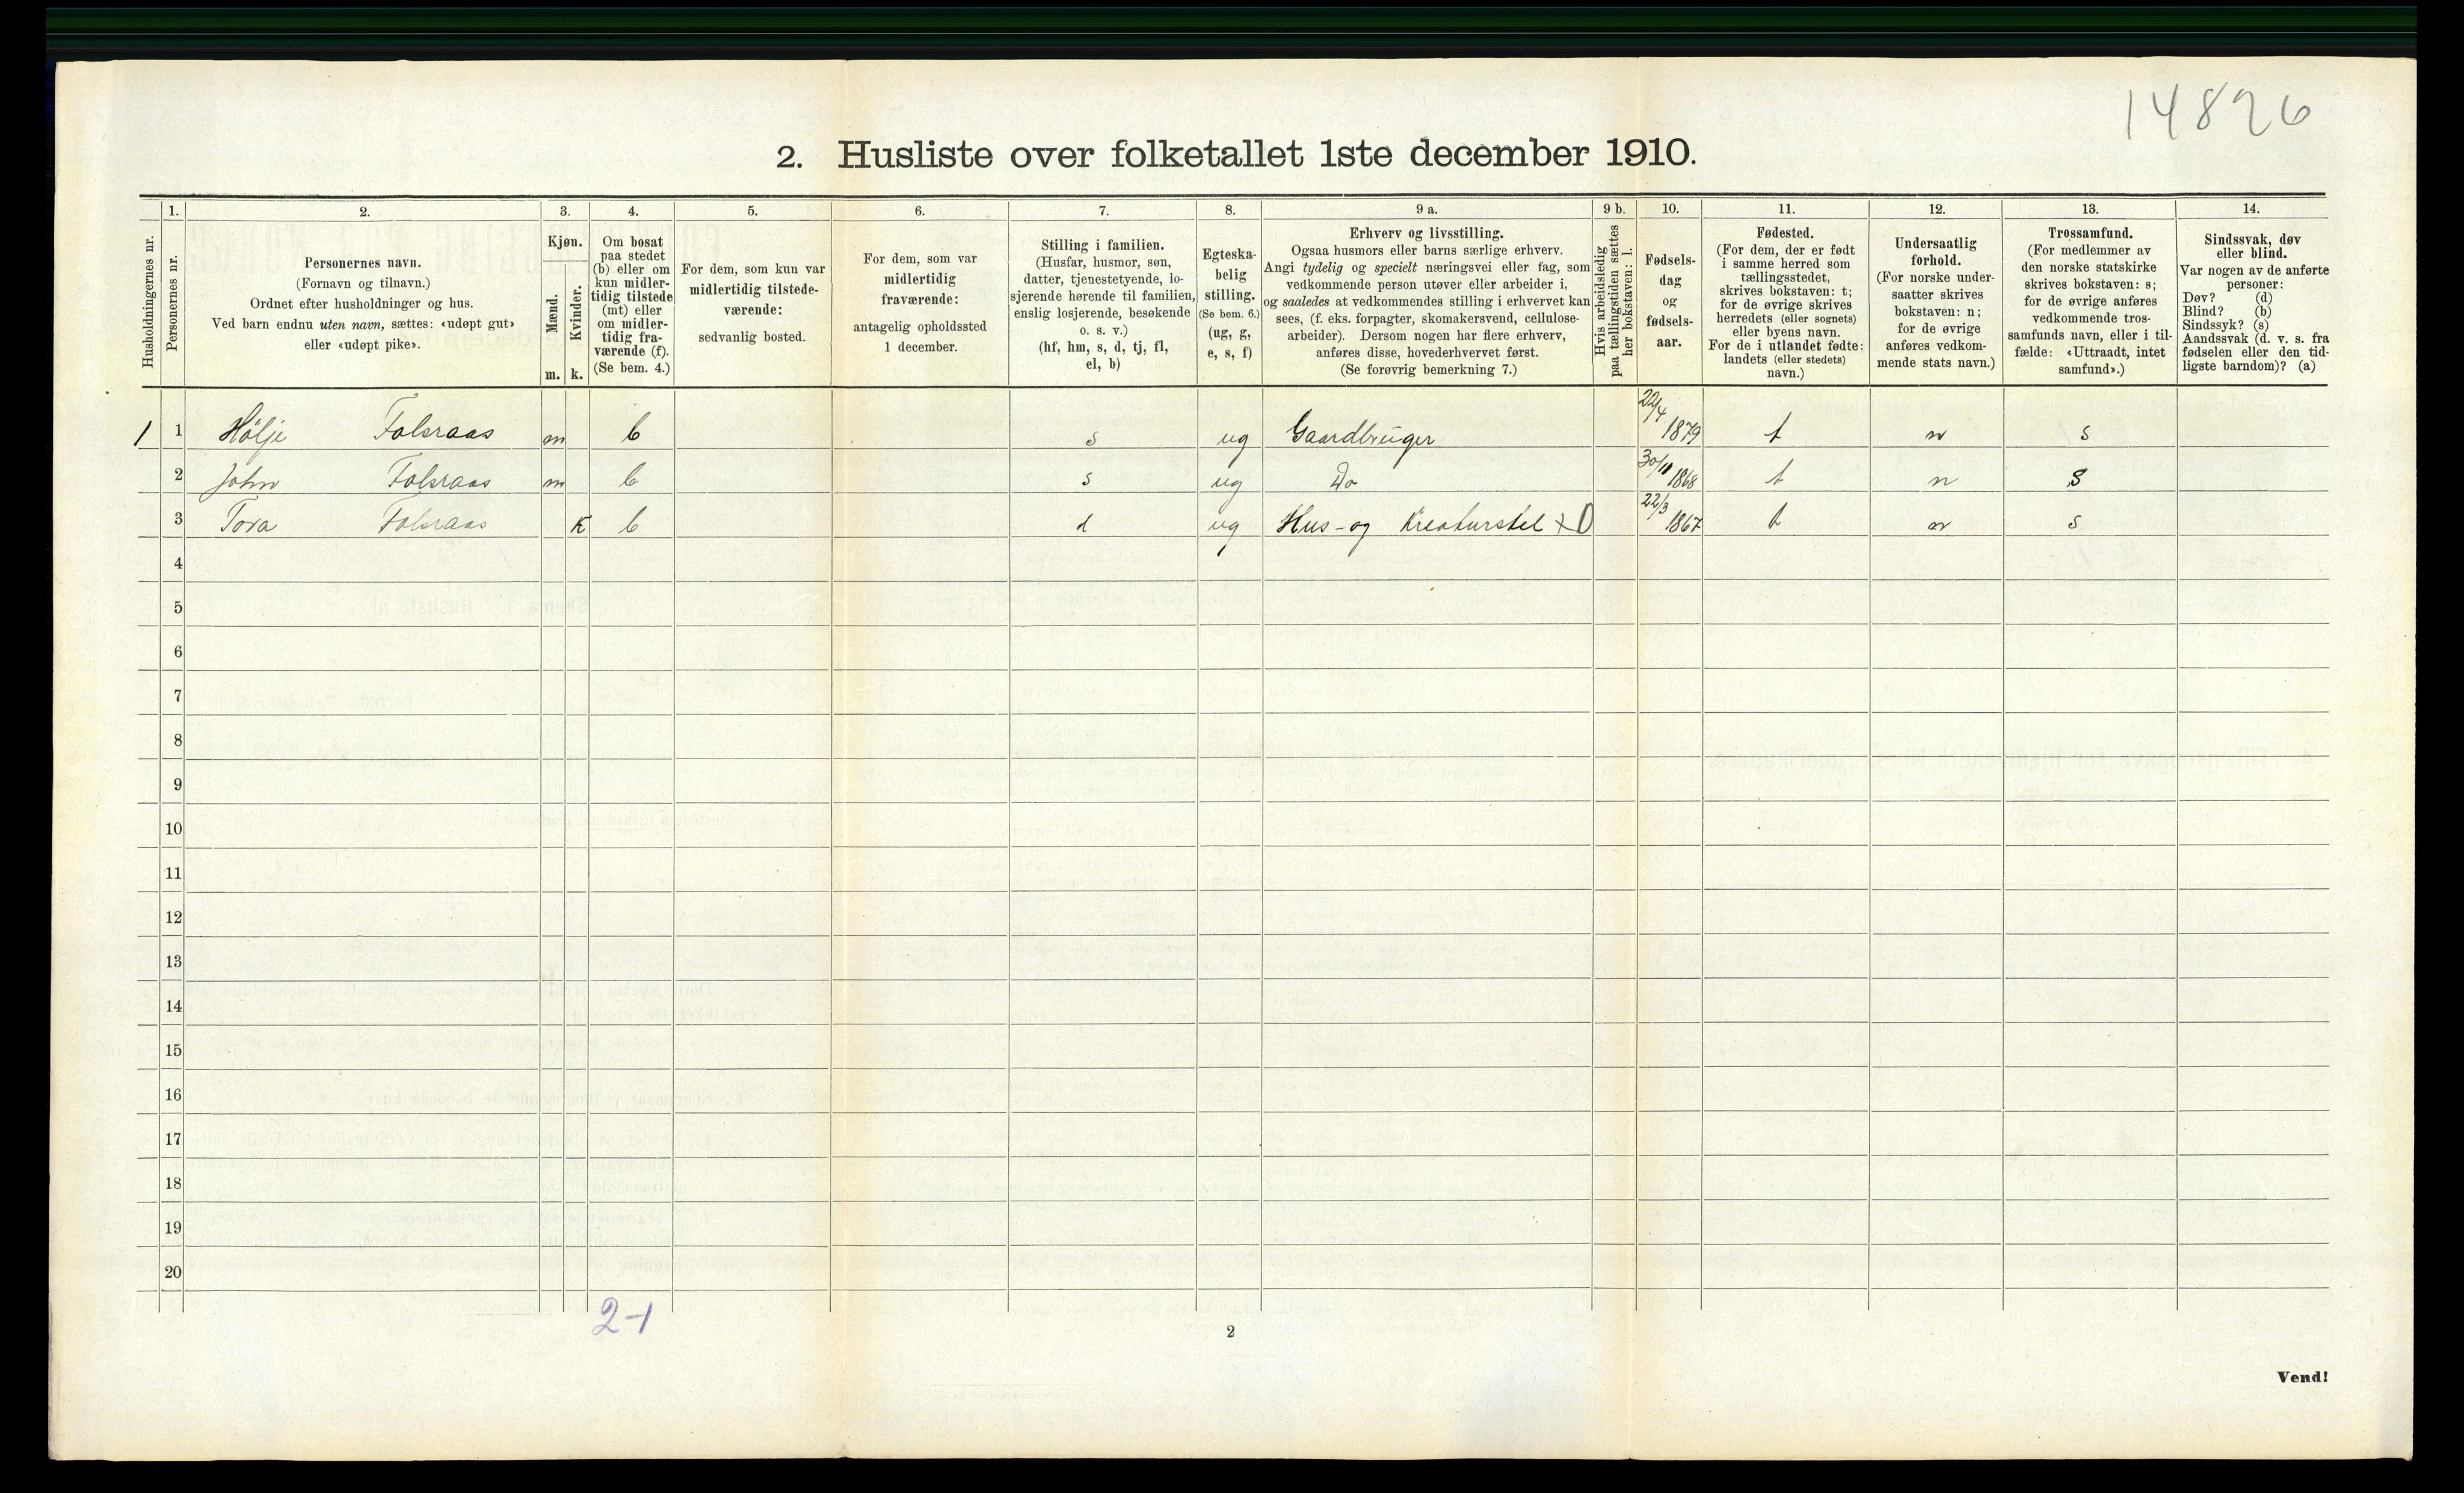 14826
2. Husliste over folketallet 1ste december 1910.
Husholdningernes nr.
1.
Personernes nr.
2.
Personernes navn.
(Fornavn og tilnavn.)
Ordnet efter husholdninger og hus.
Ved barn endnu uten navn, sættes: «udøpt gut»
eller «udøpt pike».
3.
Kjøn.
Mænd.
Kvinder.
m. k.
4.
Om bosat
paa stedet
(b) eller om
kun midler-
tidig tilstede
(mt) eller
om midler-
tidig fra-
værende (f).
(Se bem. 4.)
5.
For dem, som kun var
midlertidig tilstede-
værende:
sedvanlig bosted.
6.
For dem, som var
midlertidig
fraværende:
antagelig opholdssted
1 december.
7.
Stilling i familien.
(Husfar, husmor, søn,
datter, tjenestetyende, lo-
sjerende hørende til familien,
enslig losjerende, besøkende
o. s. v.)
(hf, hm, s, d, tj, fl,
el, b)
8.
Egteska-
belig
stilling.
(Se bem. 6.)
(ug, g,
e, s, f)
9 a.
Erhverv og livsstilling.
Ogsaa husmors eller barns særlige erhverv.
Angi tydelig og specielt næringsvei eller fag, som
vedkommende person utøver eller arbeider i,
og saaledes at vedkommendes stilling i erhvervet kan
sees, (f. eks. forpagter, skomakersvend, cellulose-
arbeider). Dersom nogen har flere erhverv,
anføres disse, hovederhvervet først.
(Se forøvrig bemerkning 7.)
9 b.
Hvis arbeidsledig
paa tællingstiden sættes
her bokstaven: l.
10.
Fødsels-
dag
og
fødsels-
aar.
11.
Fødested.
(For dem, der er født
i samme herred som
tællingsstedet,
skrives bokstaven: t;
for de øvrige skrives
herredets (eller sognets)
eller byens navn.
For de i utlandet fødte:
landets (eller stedets)
navn.)
12.
Undersaatlig
forhold.
(For norske under-
saatter skrives
bokstaven: n;
for de øvrige
anføres vedkom-
mende stats navn.)
13.
Trossamfund.
(For medlemmer av
den norske statskirke
skrives bokstaven: s;
for de øvrige anføres
vedkommende tros-
samfunds navn, eller i til-
fælde: «Uttraadt, intet
samfund».)
14.
Sindssvak, døv
eller blind.
Var nogen av de anførte
personer:
Døv? (d)
Blind? (b)
Sindssyk? (s)
Aandssvak (d. v. s. fra
fødselen eller den tid-
ligste barndom)? (a)
1 1 Hölje Folsraas m b s ug Gaardbruger 22/4 1879 t n s
2 John Folsraas m b s ug Do 30/11 1868 t n s
3 Tora Folsraas K b d ug Hus- og Kreaturstel 22/3 1867 t n s
4
5
6
7
8
9
10
11
12
13
14
15
16
17
18
19
20
2-1
2
Vend!